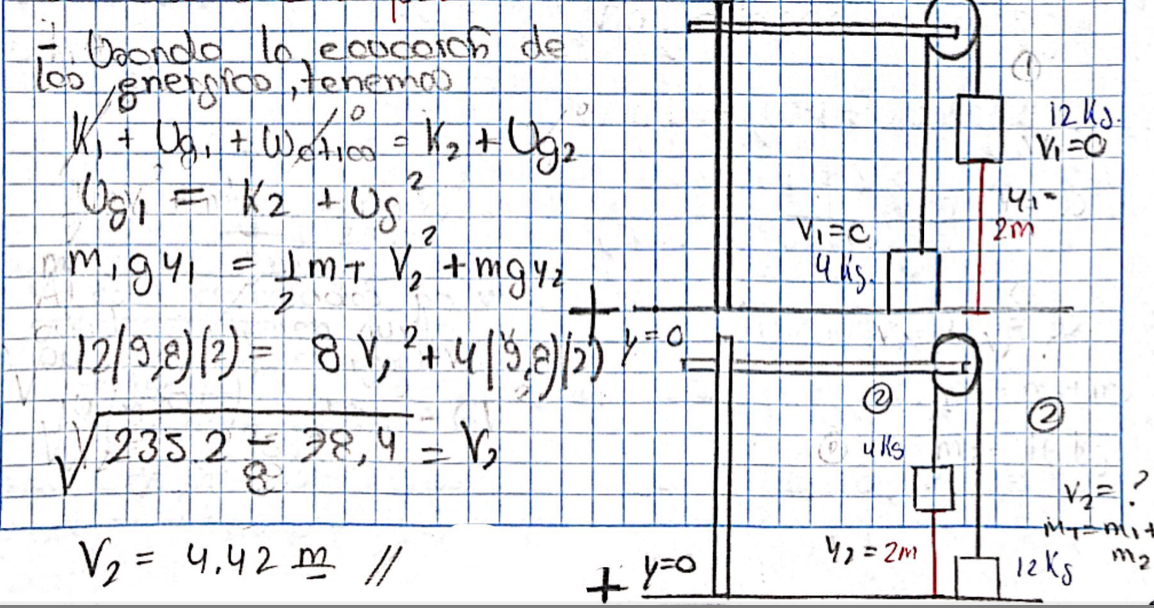 - Usando la ecuación de
las energías, tenemos
K₁ + Ug₁ + Wotros⁰ = K₂ + Ug₂
Ug₁ = K2 + Ug2
m₁gy₁ = 1/2 mT V₂² + mgy₂
12(9,8)(2) = 8 V₂² + 4(9,8)(2)
√(235.2 - 78,4 / 8) = V₂
V₂ = 4.42 m //
①
12 Kg.
V₁=0
y₁=
2m
V₁=0
4 Kg.
+ y=0
②
②
4Kg
V₂= ?
mT=m₁+
m₂
y₂=2m
12Kg
+ y=0